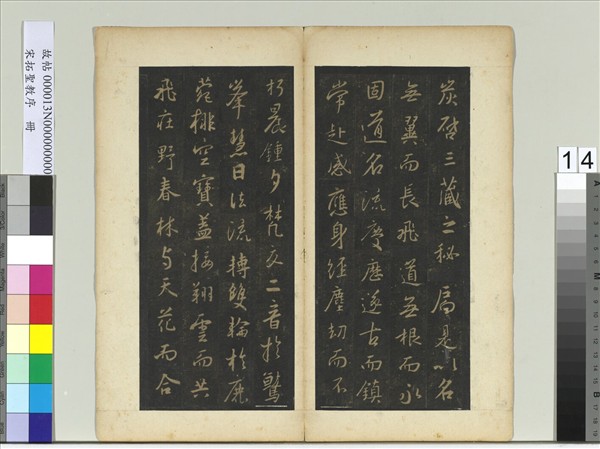 炭啓三藏之秘扃是以名
無翼而長飛道無根而永
固道名流慶歷遂古而鎮
常赴感應身經塵劫而不
朽晨鍾夕梵交二音於鷲
峯慧日法流轉雙輪於鹿
菀排空寶蓋接翔雲而共
飛莊野春林與天花而合
故帖 000013N000000000
宋拓聖教序 冊
14